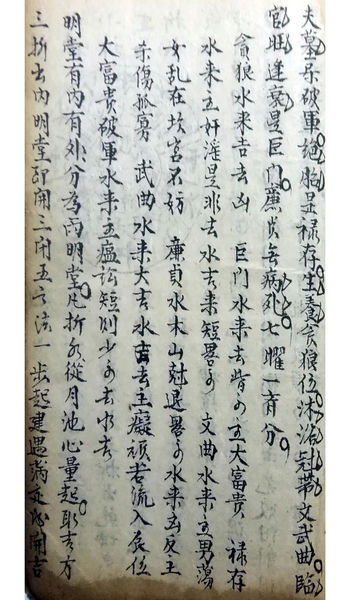 夫墓杀破軍絶胎是禄存生養貪狼位沐浴冠帶文武曲臨
官旺逢衰是巨門廉貞無病死七曜一齊分
貪狼水来吉去凶　巨門水来去皆可主大富貴　禄存
水来主奸淫是非去水吉来短畧可　文曲水来主男蕩
女乱在坎宮不妨　廉貞水木山尅退畧可水来凶反主
杀傷孤寡　武曲水来大吉水去主癡頑若流入辰位
大富貴破軍水来主瘟訟短則少可去水吉
明堂有內有外分為両明堂凡折水從月池心量起取吉方
三折出內明堂即開三閉五之法一步起建遇滿定成開吉